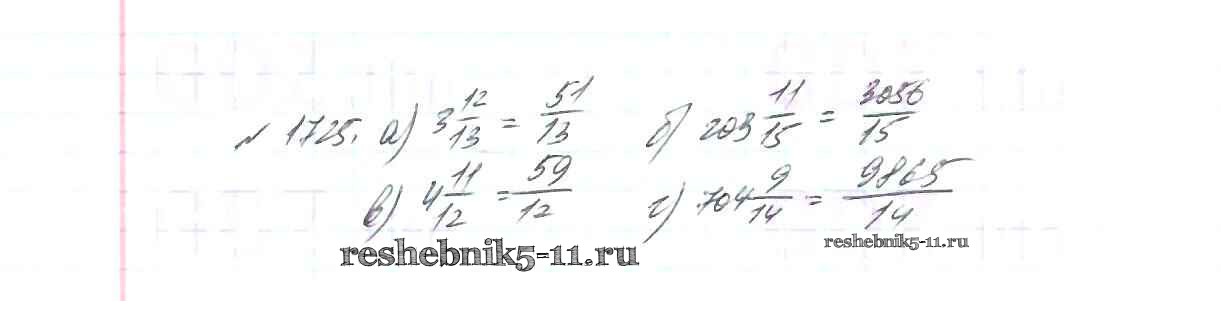 № 1725. а) 3 12/13 = 51/13 б) 203 11/15 = 3056/15
в) 4 11/12 = 59/12 г) 704 9/14 = 9865/14
reshebnik5-11.ru reshebnik5-11.ru